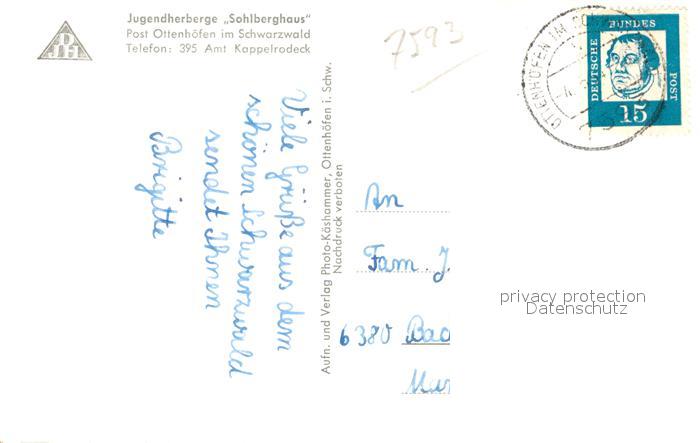 DJH
Jugendherberge „Sohlberghaus"
Post Ottenhöfen im Schwarzwald
Telefon: 395 Amt Kappelrodeck
7593
OTTENHÖFEN IM
DEUTSCHE BUNDES POST
15
Viele Grüße aus dem
schönen Schwarzwald
sendet Ihnen
Brigitte
Aufn. und Verlag Photo-Käshammer, Ottenhöfen i. Schw.
Nachdruck verboten
An
Fam. J.
6380 Bad
privacy protection
Datenschutz